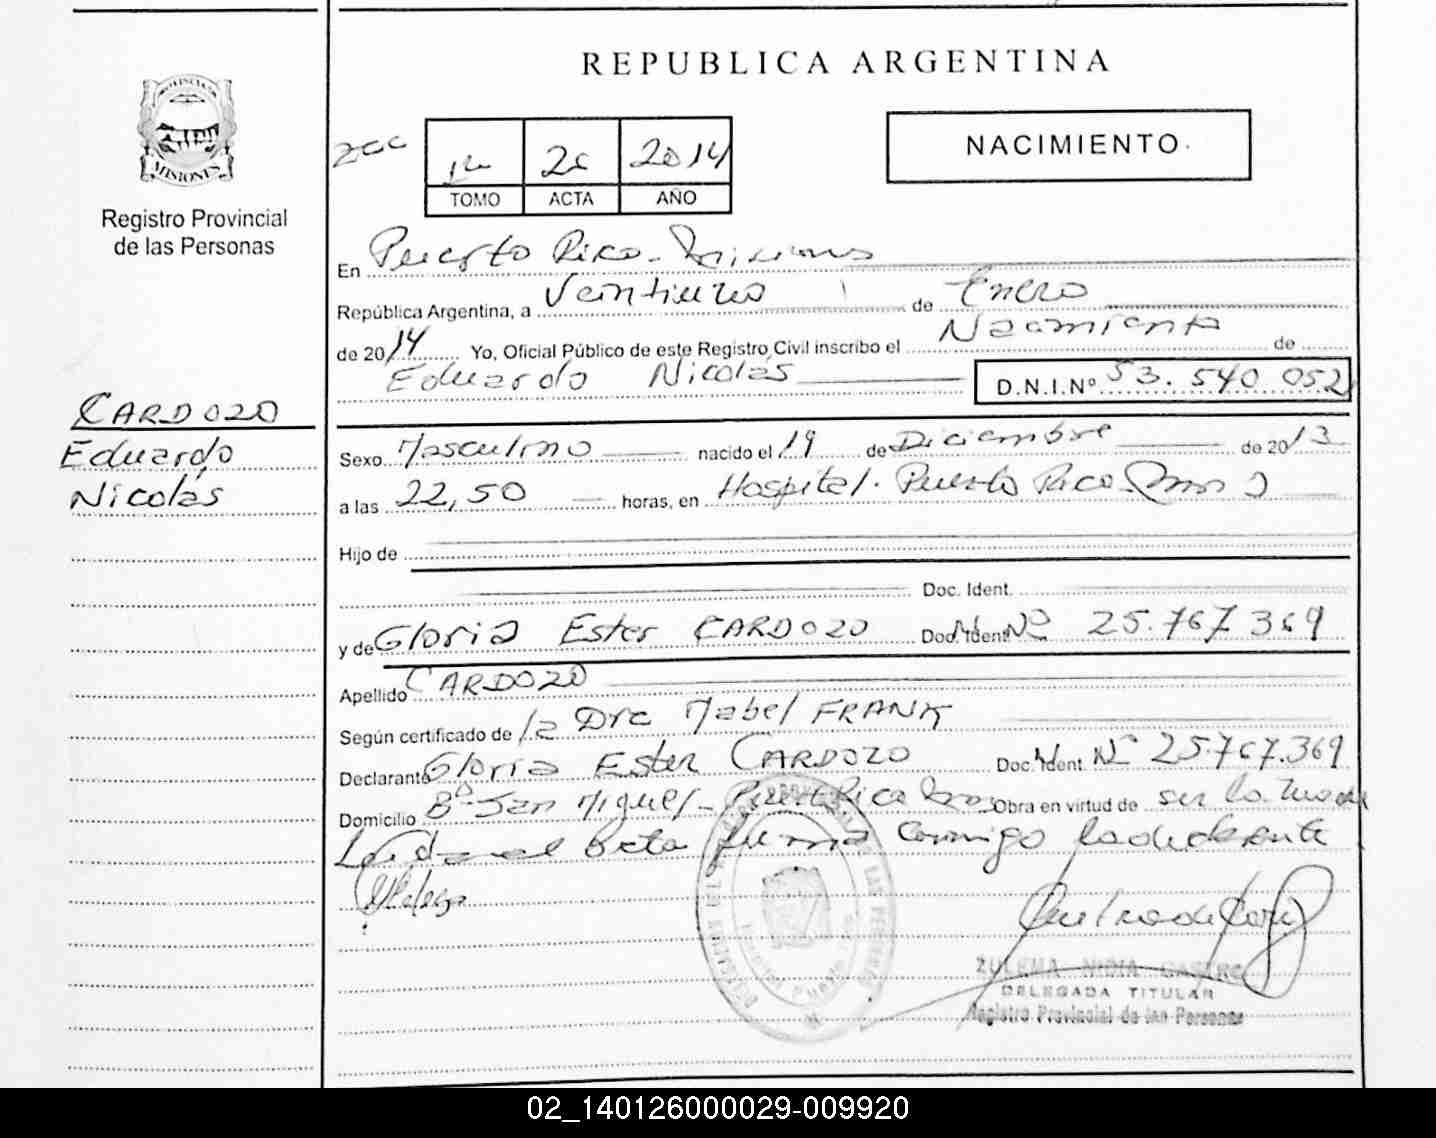 REPUBLICA ARGENTINA
PROVINCIA DE
MISIONES
Registro Provincial
de las Personas
NACIMIENTO
2014
TOMO ACTA AÑO
En Puerto Rico - Misiones
República Argentina, a Veintiuno de Enero
de 2014 Yo, Oficial Público de este Registro Civil inscribo el Nacimiento de
Eduardo Nicolás D.N.I.Nº 53.540.052
CARDOZO
Eduardo
Nicolás
Sexo Masculino nacido el 19 de Diciembre de 2013
a las 22,50 horas, en Hospital. Puerto Rico
Hijo de
Doc. Ident.
y de Gloria Ester CARDOZO Doc. Ident. Nº 25.767.369
Apellido CARDOZO
Según certificado de la Dra Mabel FRANK
Declarante Gloria Ester CARDOZO Doc. Ident. Nº 25767.369
Domicilio Bº San Miguel - Puerto Rico Mnes Obra en virtud de ser la madre
Leida el Acta firma conmigo la declarante
ZULEMA NIDIA CASTRO
DELEGADA TITULAR
Registro Provincial de las Personas
02_140126000029-009920